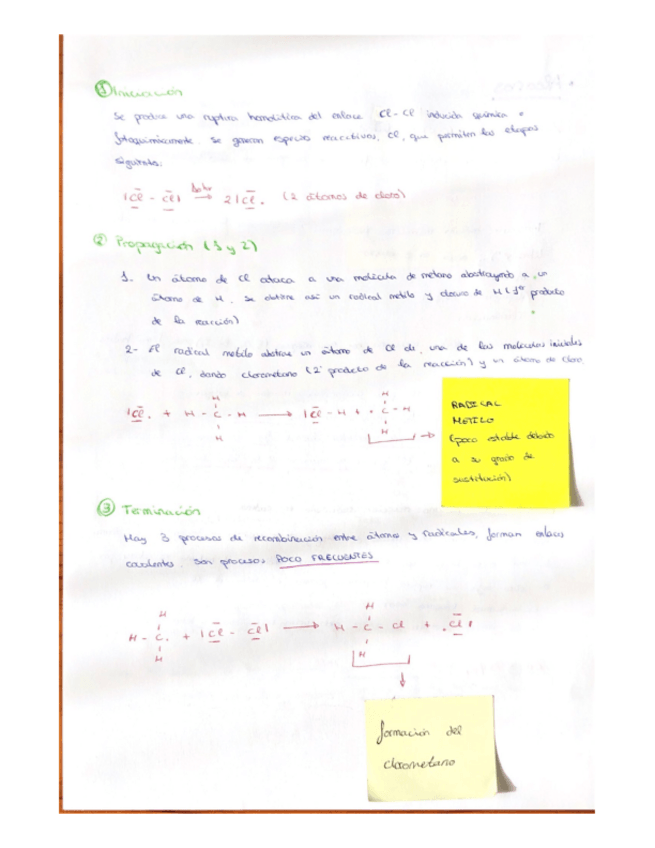 ① Iniciación
Se produce una ruptura homolítica del enlace Cl-Cl inducida química o
fotoquímicamente. Se generan especies reactivas, Cl, que permiten las etapas
siguientes:
|Cl - Cl| → 2|Cl. (2 átomos de cloro)
② Propagación (1 y 2)
1. Un átomo de Cl ataca a una molécula de metano abstrayendo a un
átomo de H. Se obtiene así un radical metilo y cloruro de H (1er producto
de la reacción)
2- El radical metilo abstrae un átomo de Cl de una de las moléculas iniciales
de Cl, dando clorometano (2º producto de la reacción) y un átomo de cloro
H H
|Cl. + H - C - H → |Cl - H + . C - H
H H
RADICAL
METILO
(poco estable debido
a su grado de
sustitución)
③ Terminación
Hay 3 procesos de recombinación entre átomos y radicales, forman enlaces
covalentes. Son procesos POCO FRECUENTES
H H
H - C. + |Cl - Cl| → H - C - Cl + .Cl|
H H
formación del
clorometano